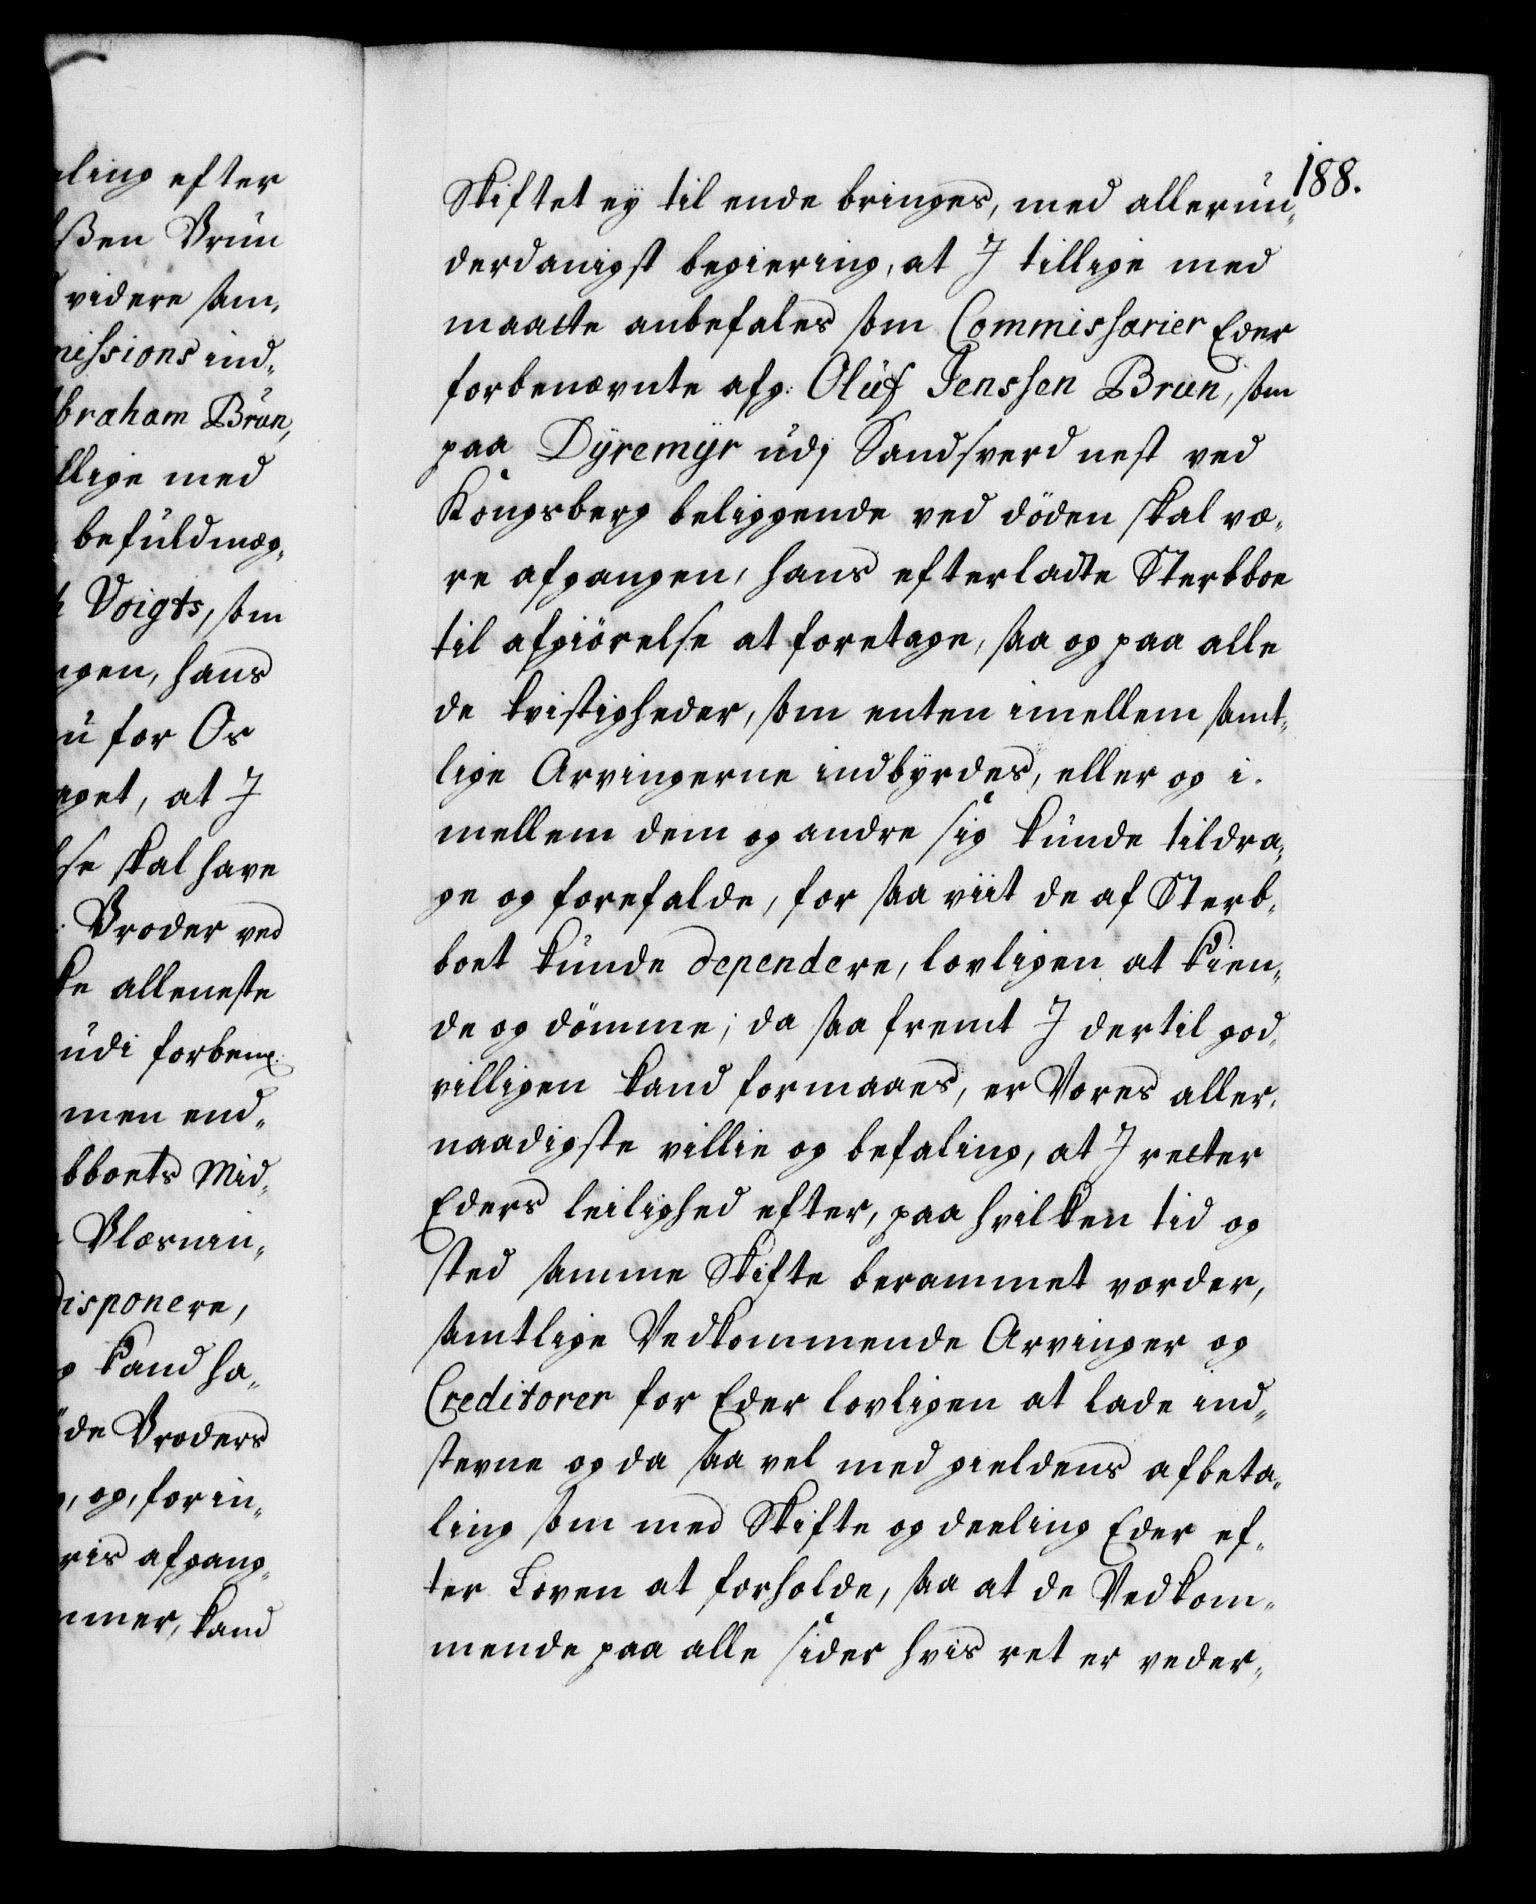 ling efter
ßen Brun
videre som,
missions ind,,
braham Brun,
llige med
befuldmæg,,
Voigts, som
gen, hans
u for Os
aget, at I
se skal have
Broder ved
ke alleneste
udi forben:
men end,,
bboets Mid,,
Blæsnin,,
disponere,
kand ha,,
de Broders
, og, for in,,
ris afgang,
mmer, kand
188.
Skiftet ej til ende bringes, med allerun,,
derdanigst begiering, at I tillige med
maatte anbefales som Commissarier Eder
forbenævnte afg: Oluf Jenssen Brun, som
paa Dyremyr udj Sandsverd nest ved
Kongsberg beliggende ved döden skal væ,,
re afgangen, hans efterladte Sterbboe
til afgiörelse at foretage, saa og paa alle
de tvistigheder, som enten imellem samt,,
lige Arvingerne indbyrdes, eller og i,,
mellem dem og andre sig kunde tildra,,
ge og forefalde, for saa viit de af Sterb,,
boet kunde dependere, lovligen at kien,,
de og dömme; da saa fremt I dertil god,,
villigen kand formaaes, er Vores aller,,
naadigste villie og befaling, at I retter
Eders leilighed efter, paa hvilken tid og
sted samme Skifte berammet vorder,
samtlige Vedkommende Arvinger og
Creditorer for Eder lovligen at lade ind,,
stevne og da saa vel med gieldens afbeta,,
ling som med Skifte og deeling Eder ef,,
ter Loven at forholde, saa at de Vedkom,,
mende paa alle sider hvis ret er veder,,